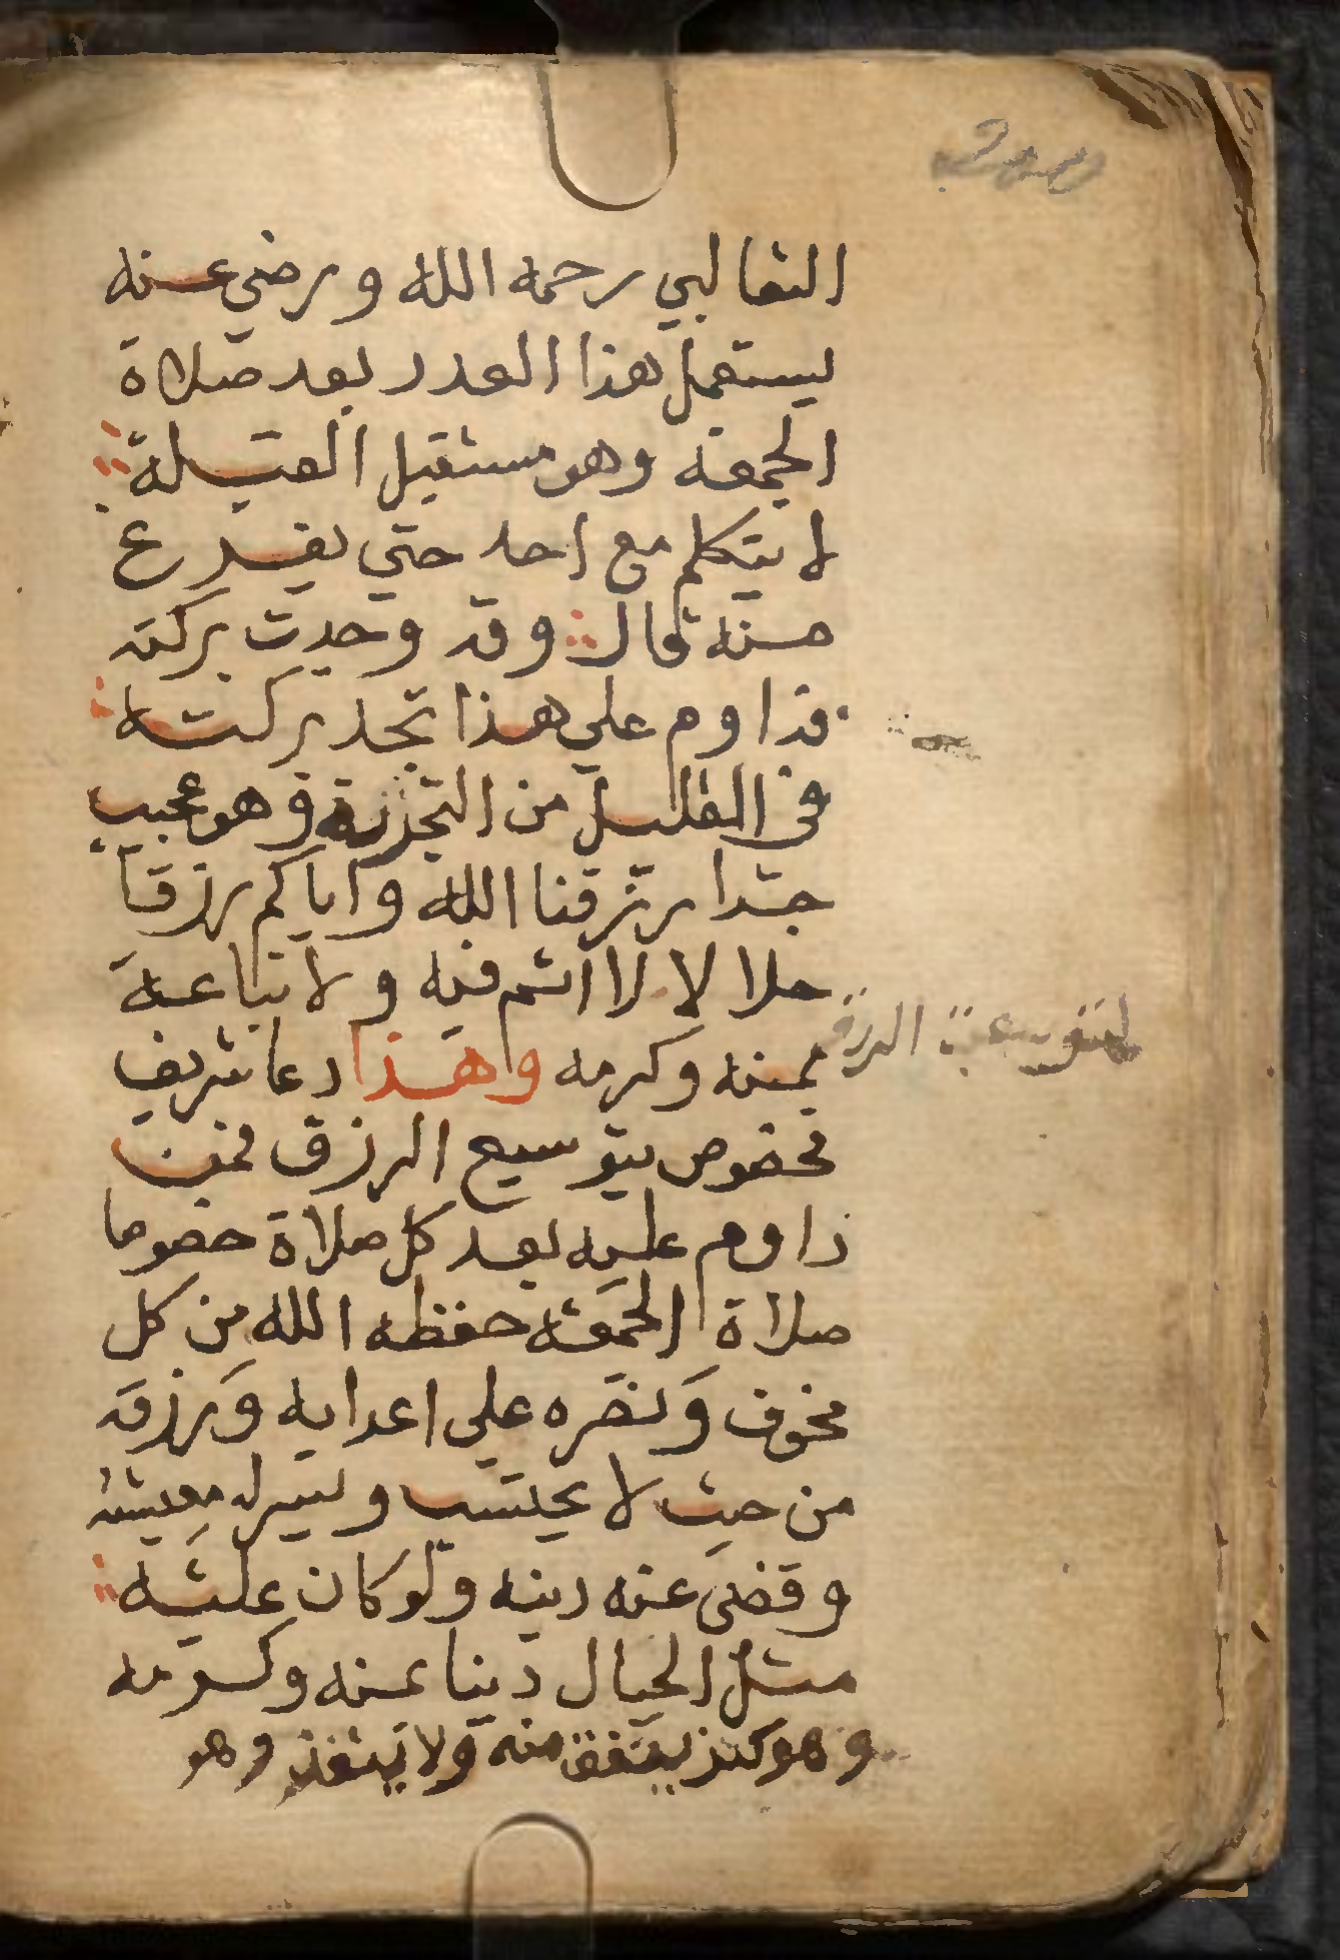 الثعالبي رحمه الله ورضي عنه
يستعمل هذا العدد بعد صلاة
الجمعة وهو مستقبل القبلة
لا يتكلم مع احد حتي يفرغ
منه قال وقد وجدت بركته
فداوم علي هذا تجد بركته
في القليل من التجربة وهو عجيب
جدا رزقنا الله واياكم رزقا
حلالا لا اثم فيه ولا تباعة
بمنه وكرمه وهذا دعا شريف
مخصوص بتوسيع الرزق فمن
داوم عليه بعد كل صلاة خصوصا
صلاة الجمعة حفظه الله من كل
مخوف ونصره علي اعدايه ورزقه
من حيث لا يحتسب ويسر له معيشته
وقضي عنه دينه ولو كان عليه
مثل الجبال دينا بمنه وكرمه
وهو كنز ينفق منه ولا ينفذ وهو
الرزق
200